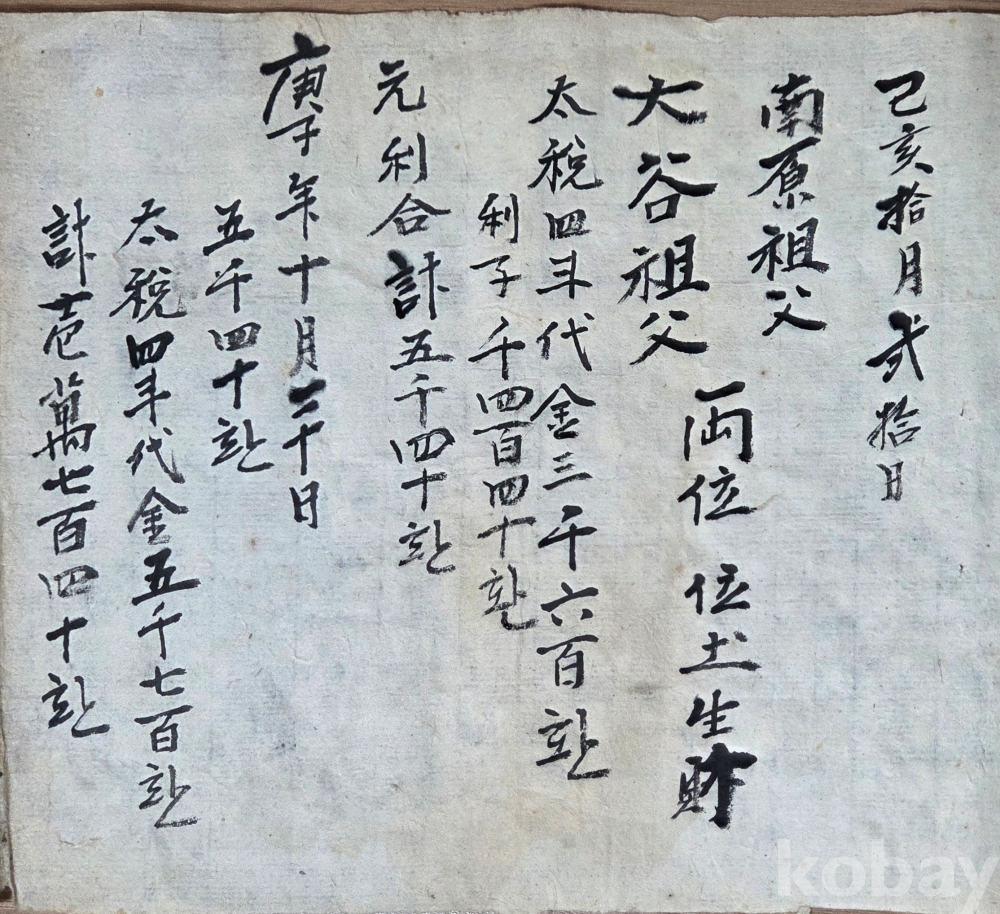 己亥拾月貳拾日
南原祖父
大谷祖父
両位 位土生財
太稅四斗代金三千六百환
利子千四百四十환
元利合計五千四十환
庚子年十月二十日
五千四十환
太稅四斗代金五千七百환
計壱萬七百四十환
kobay